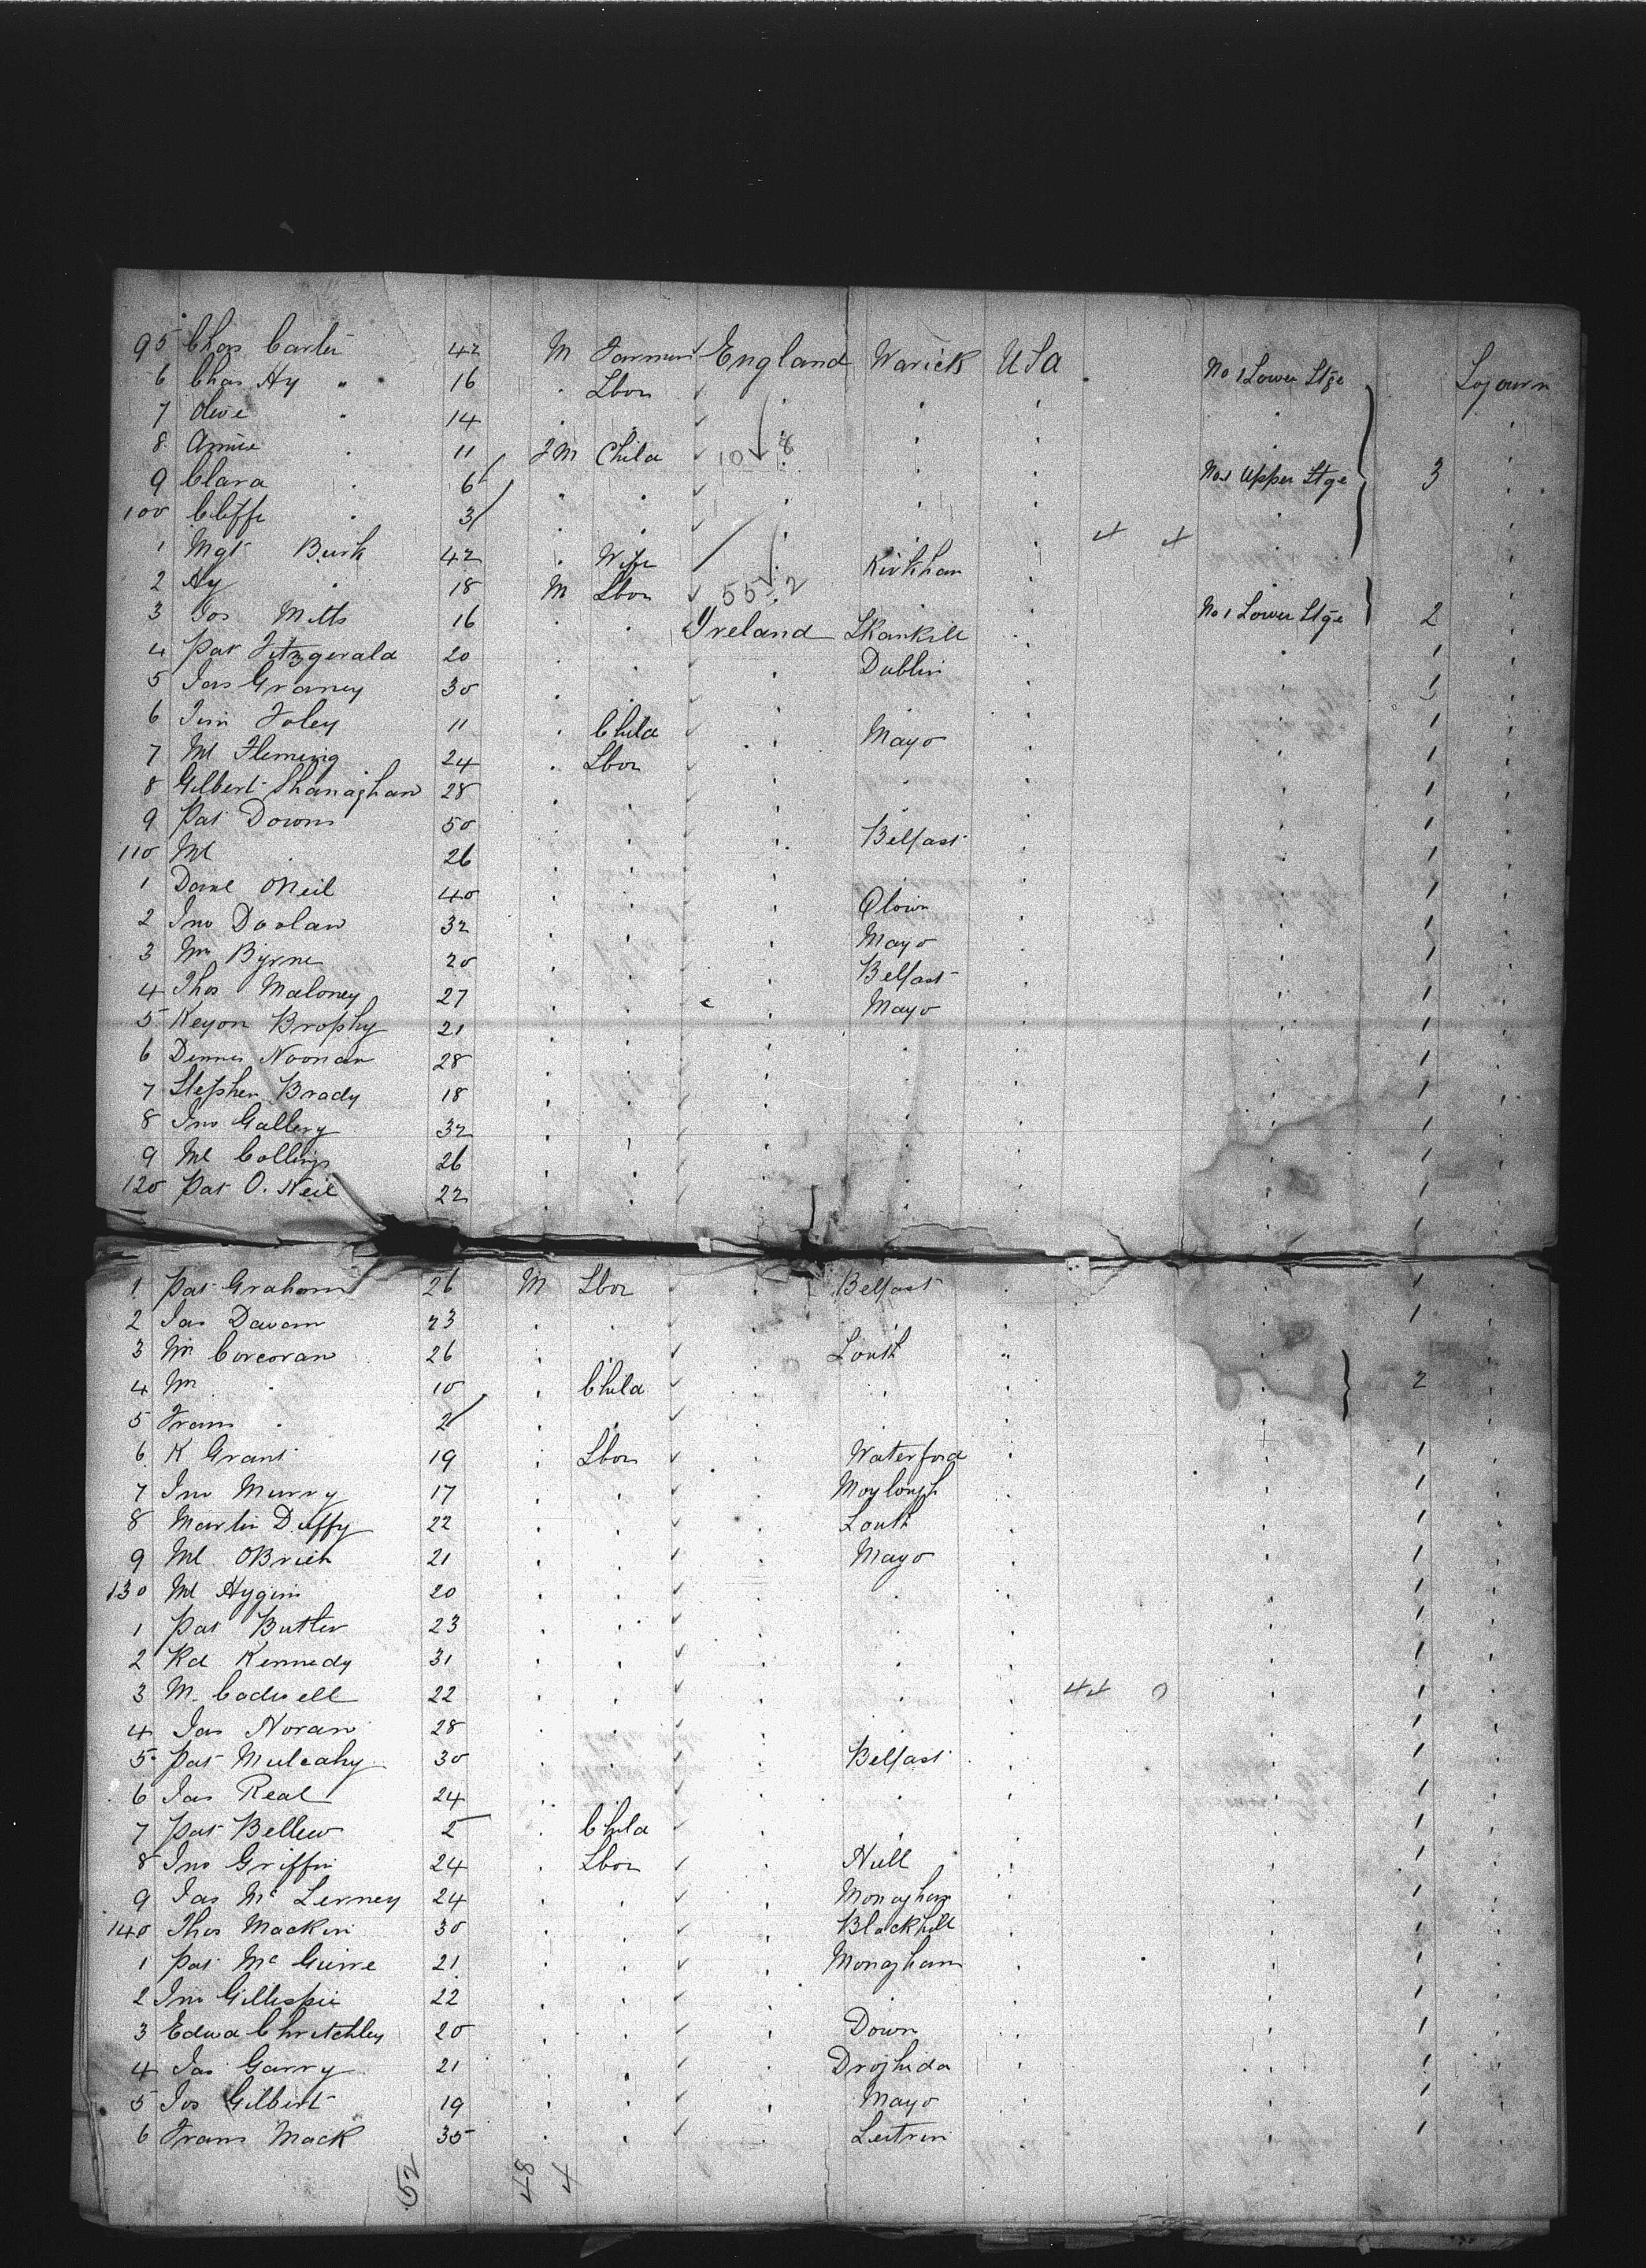 95 Chas Carter 42 M Farmer England Warick USA No 1 Lower Stge Sojourn
6 Chas Hy " " 16 Lbor
7 Olive 14
8 Annie 11 F M Child 10 8
9 Clara 6 No 1 Upper Stge 3
100 Cliffe 3
1 Mgt Burk 42 Wife Kirkham
2 Hy 18 M Lbor 55 2
3 Jos Mitts 16 Ireland Skankill No 1 Lower Stge 2
4 Pat Fitzgerald 20 Dublin 1
5 Jas Graney 30 1
6 Tim Foley 11 Child Mayo 1
7 Ml Fleming 24 Lbor 1
8 Gilbert Shanaghan 28 1
9 Pat Downs 50 Belfast 1
110 Ml 26 1
1 Danl ONeil 40 1
2 Jno Doolan 32 Mayo 1
3 Wm Byrne 20 Belfast 1
4 Thos Maloney 27 Mayo 1
5 Keyon Brophy 21 1
6 Dennis Noonan 28 1
7 Stephen Brady 18 1
8 Jno Gallery 32 1
9 Ml Collins 26 1
120 Pat O. Neil 22 1
1 Pat Graham 26 M Lbor Belfast 1
2 Jas Davom 23 1
3 Wm Corcoran 26 Louth "
4 Wm 10 Child 2
5 Frans 2
6 K Grant 19 Lbor Waterford 1
7 Jno Murry 17 Moylough 1
8 Martin Duffy 22 Louth 1
9 Ml OBrien 21 Mayo 1
130 Ml Hygins 20 1
1 Pat Butler 23 1
2 Rd Kennedy 31 1
3 M. Codwell 22 44 0 1
4 Jas Noran 28 1
5 Pat Mulcahy 30 Belfast 1
6 Jas Real 24 1
7 Pat Bellew 2 Child 1
8 Jno Griffin 24 Lbor Hill 1
9 Jas Mc Lerney 24 Monaghan 1
140 Thos Mackin 30 Blackhill 1
1 Pat Mc Guire 21 Monaghan 1
2 Jno Gillespie 22 1
3 Edwd Chritchley 20 Down 1
4 Jas Garry 21 Droghida 1
5 Jos Gilbert 19 Mayo 1
6 Frans Mack 35 Leitrim 1
52 48 4